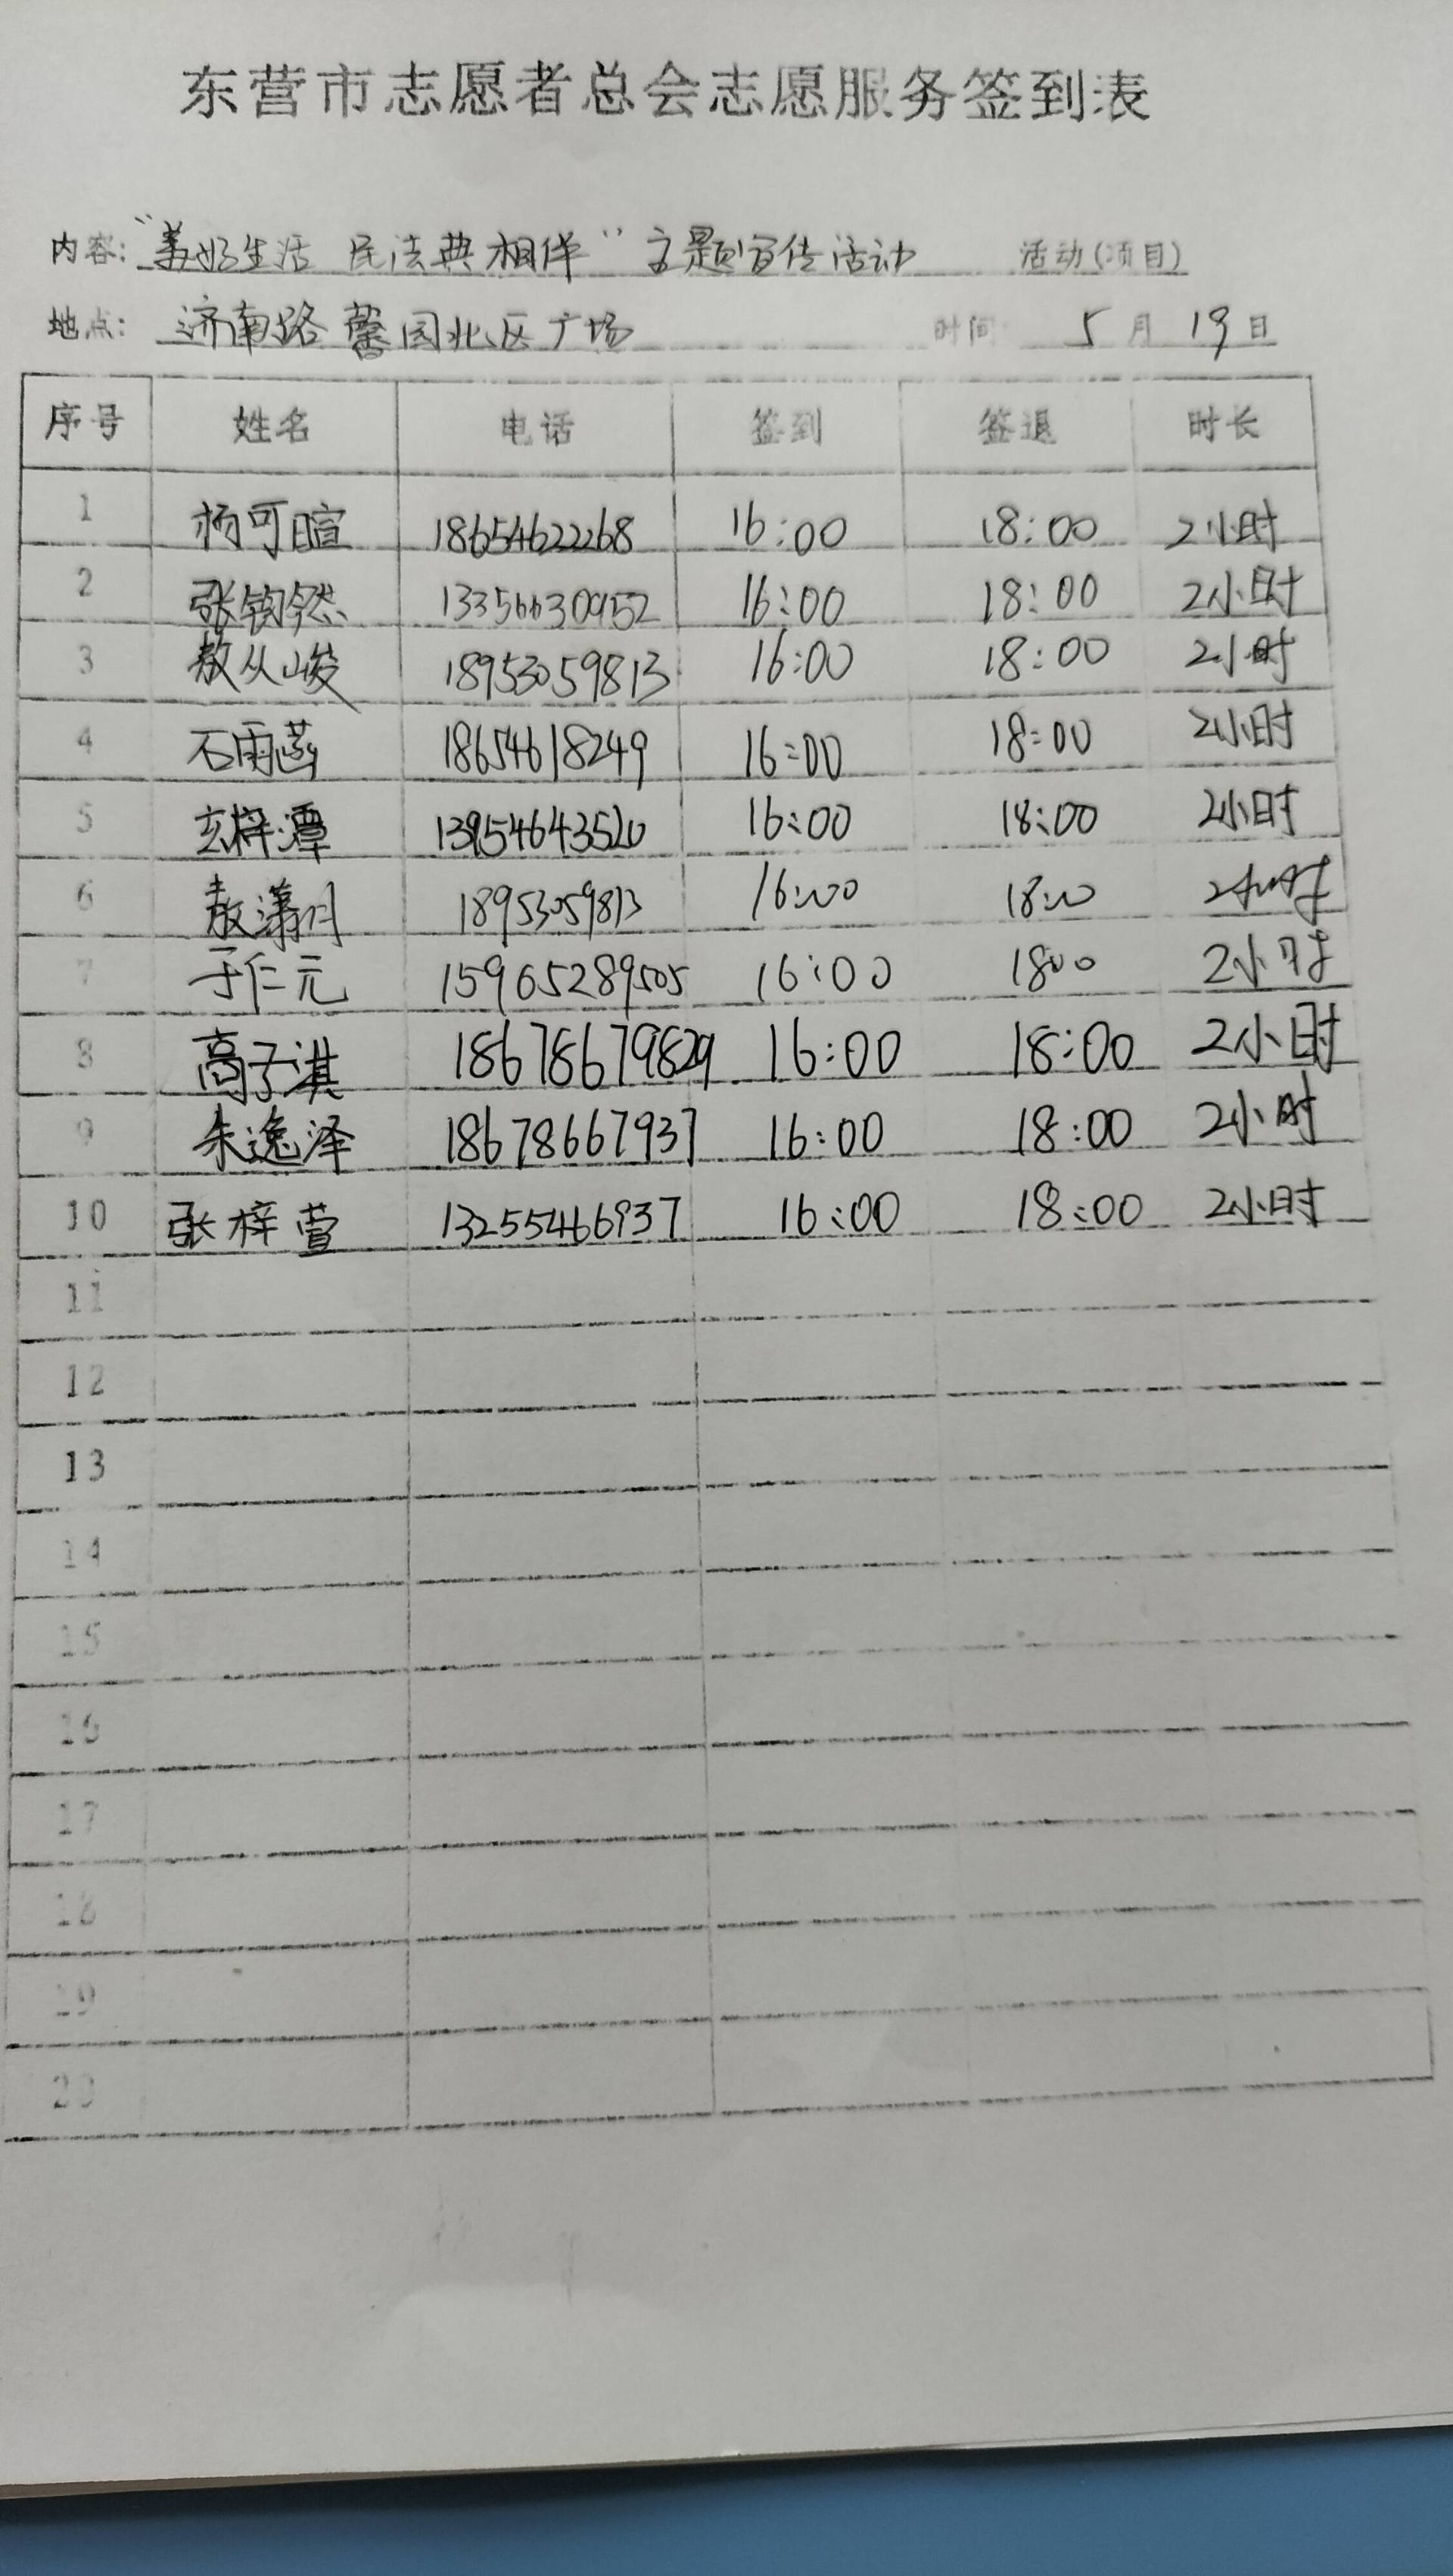 东营市志愿者总会志愿服务签到表
内容: “美好生活 民法典相伴” 主题宣传活动 活动(项目)
地点: 济南路馨园北区广场 时间 5月19日
序号 姓名 电话 签到 签退 时长
1 杨可暄 18654622268 16:00 18:00 2小时
2 张钧然 13356630952 16:00 18:00 2小时
3 敖从峻 18953059813 16:00 18:00 2小时
4 石雨菡 18654618249 16:00 18:00 2小时
5 玄梓潭 13954643520 16:00 18:00 2小时
6 敖潇月 18953059813 16:00 18:00 2小时
7 于仁元 15965289505 16:00 18:00 2小时
8 高子淇 18678679829 16:00 18:00 2小时
9 朱逸泽 18678667937 16:00 18:00 2小时
10 张梓萱 13255466937 16:00 18:00 2小时
11
12
13
14
15
16
17
18
19
20